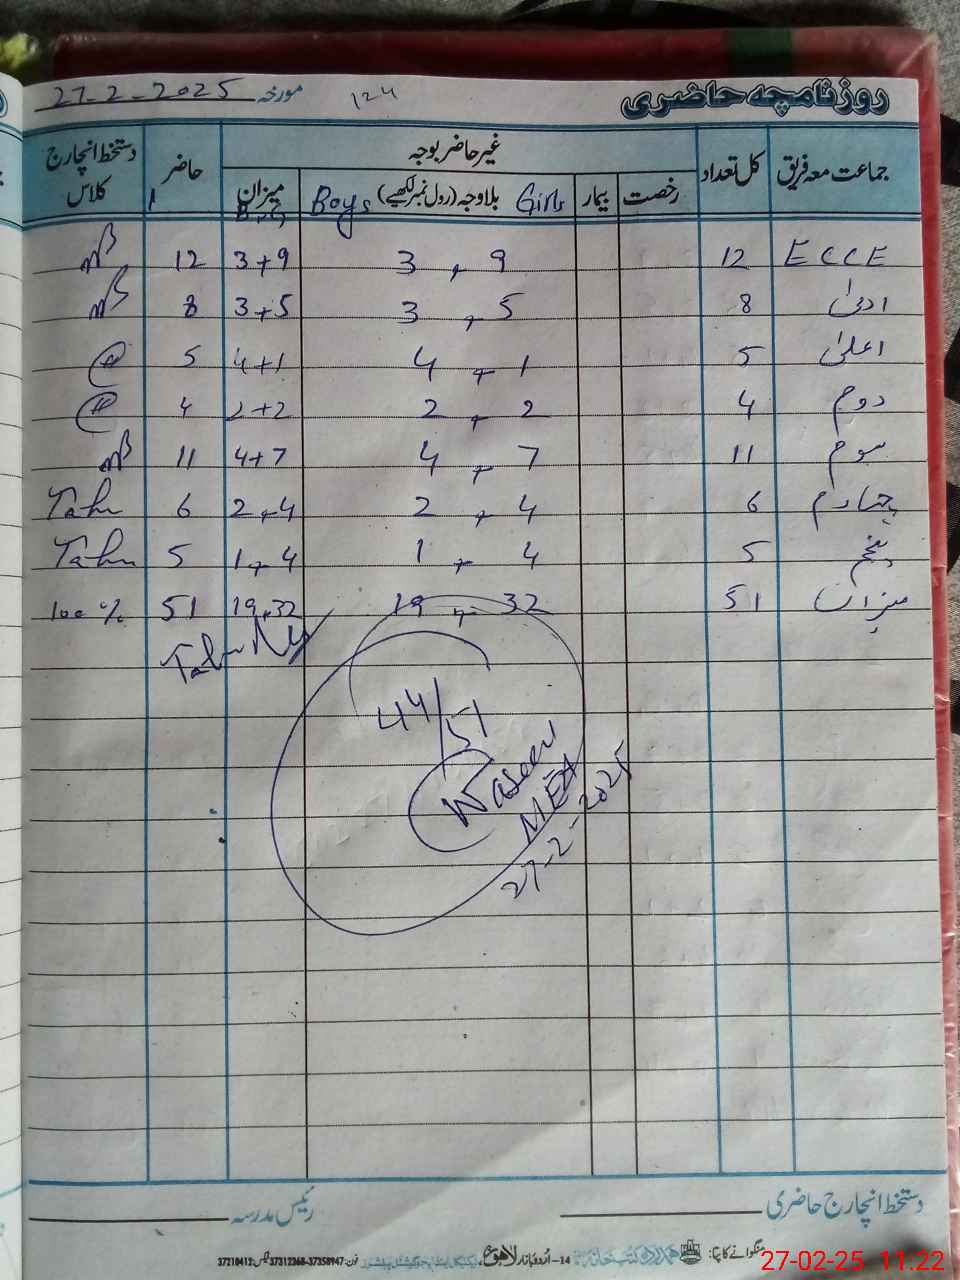 روزنامچہ حاضری 124 مورخہ 27-2-2025
جماعت معہ فریق کل تعداد غیر حاضر بوجہ حاضر دستخط انچارج کلاس
رخصت بیمار Girls بلاوجہ (رول نمبر لکھیے) Boys میزان
ECCE 12 3 + 9 3+9 12
ادنیٰ 8 3 + 5 3+5 8
اعلیٰ 5 4 + 1 4+1 5
دوم 4 2 + 2 2+2 4
سوم 11 4 + 7 4+7 11
چہارم 6 2 + 4 2+4 6
پنجم 5 1 + 4 1+4 5
میزان 51 19 + 32 19+32 51 100%
44/51
Waseem
MEA
27-2-2025
دستخط انچارج حاضری رئیس مدرسہ
منگوانے کا پتا: 14-اُردو بازار لاہور فون: 37312368-37358947 فیکس: 37210412
27-02-25 11:22